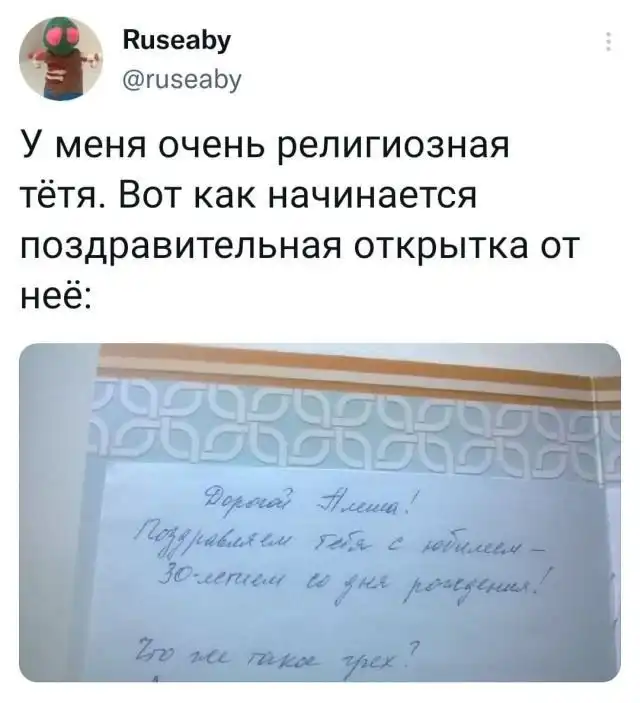 Ruseaby
@ruseaby
У меня очень религиозная
тётя. Вот как начинается
поздравительная открытка от
неё:
Дорогой Алеша!
Поздравляем тебя с юбилеем –
30-летием со дня рождения!
Что же такое грех?